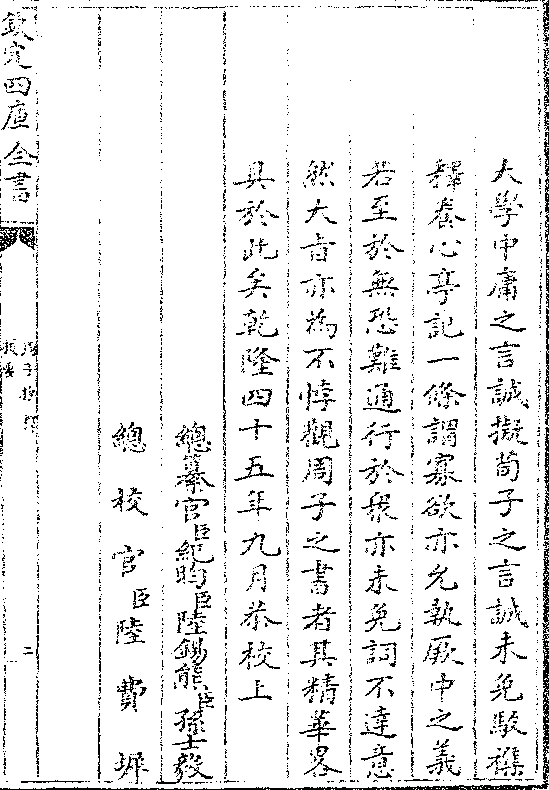 大學中庸之言誠擬荀子之言誠未免駁雜
釋養心亭記一條謂寡欲亦允執厥中之義
若至於無恐難通行於衆亦未免詞不達意
然大㫖亦為不悖觀周子之書者其精華畧
具於此矣乾隆四十五年九月恭校上
總纂官臣紀昀臣陸錫熊臣孫士毅
總校官臣陸費墀
欽定四庫全書
周子抄釋
提要
二